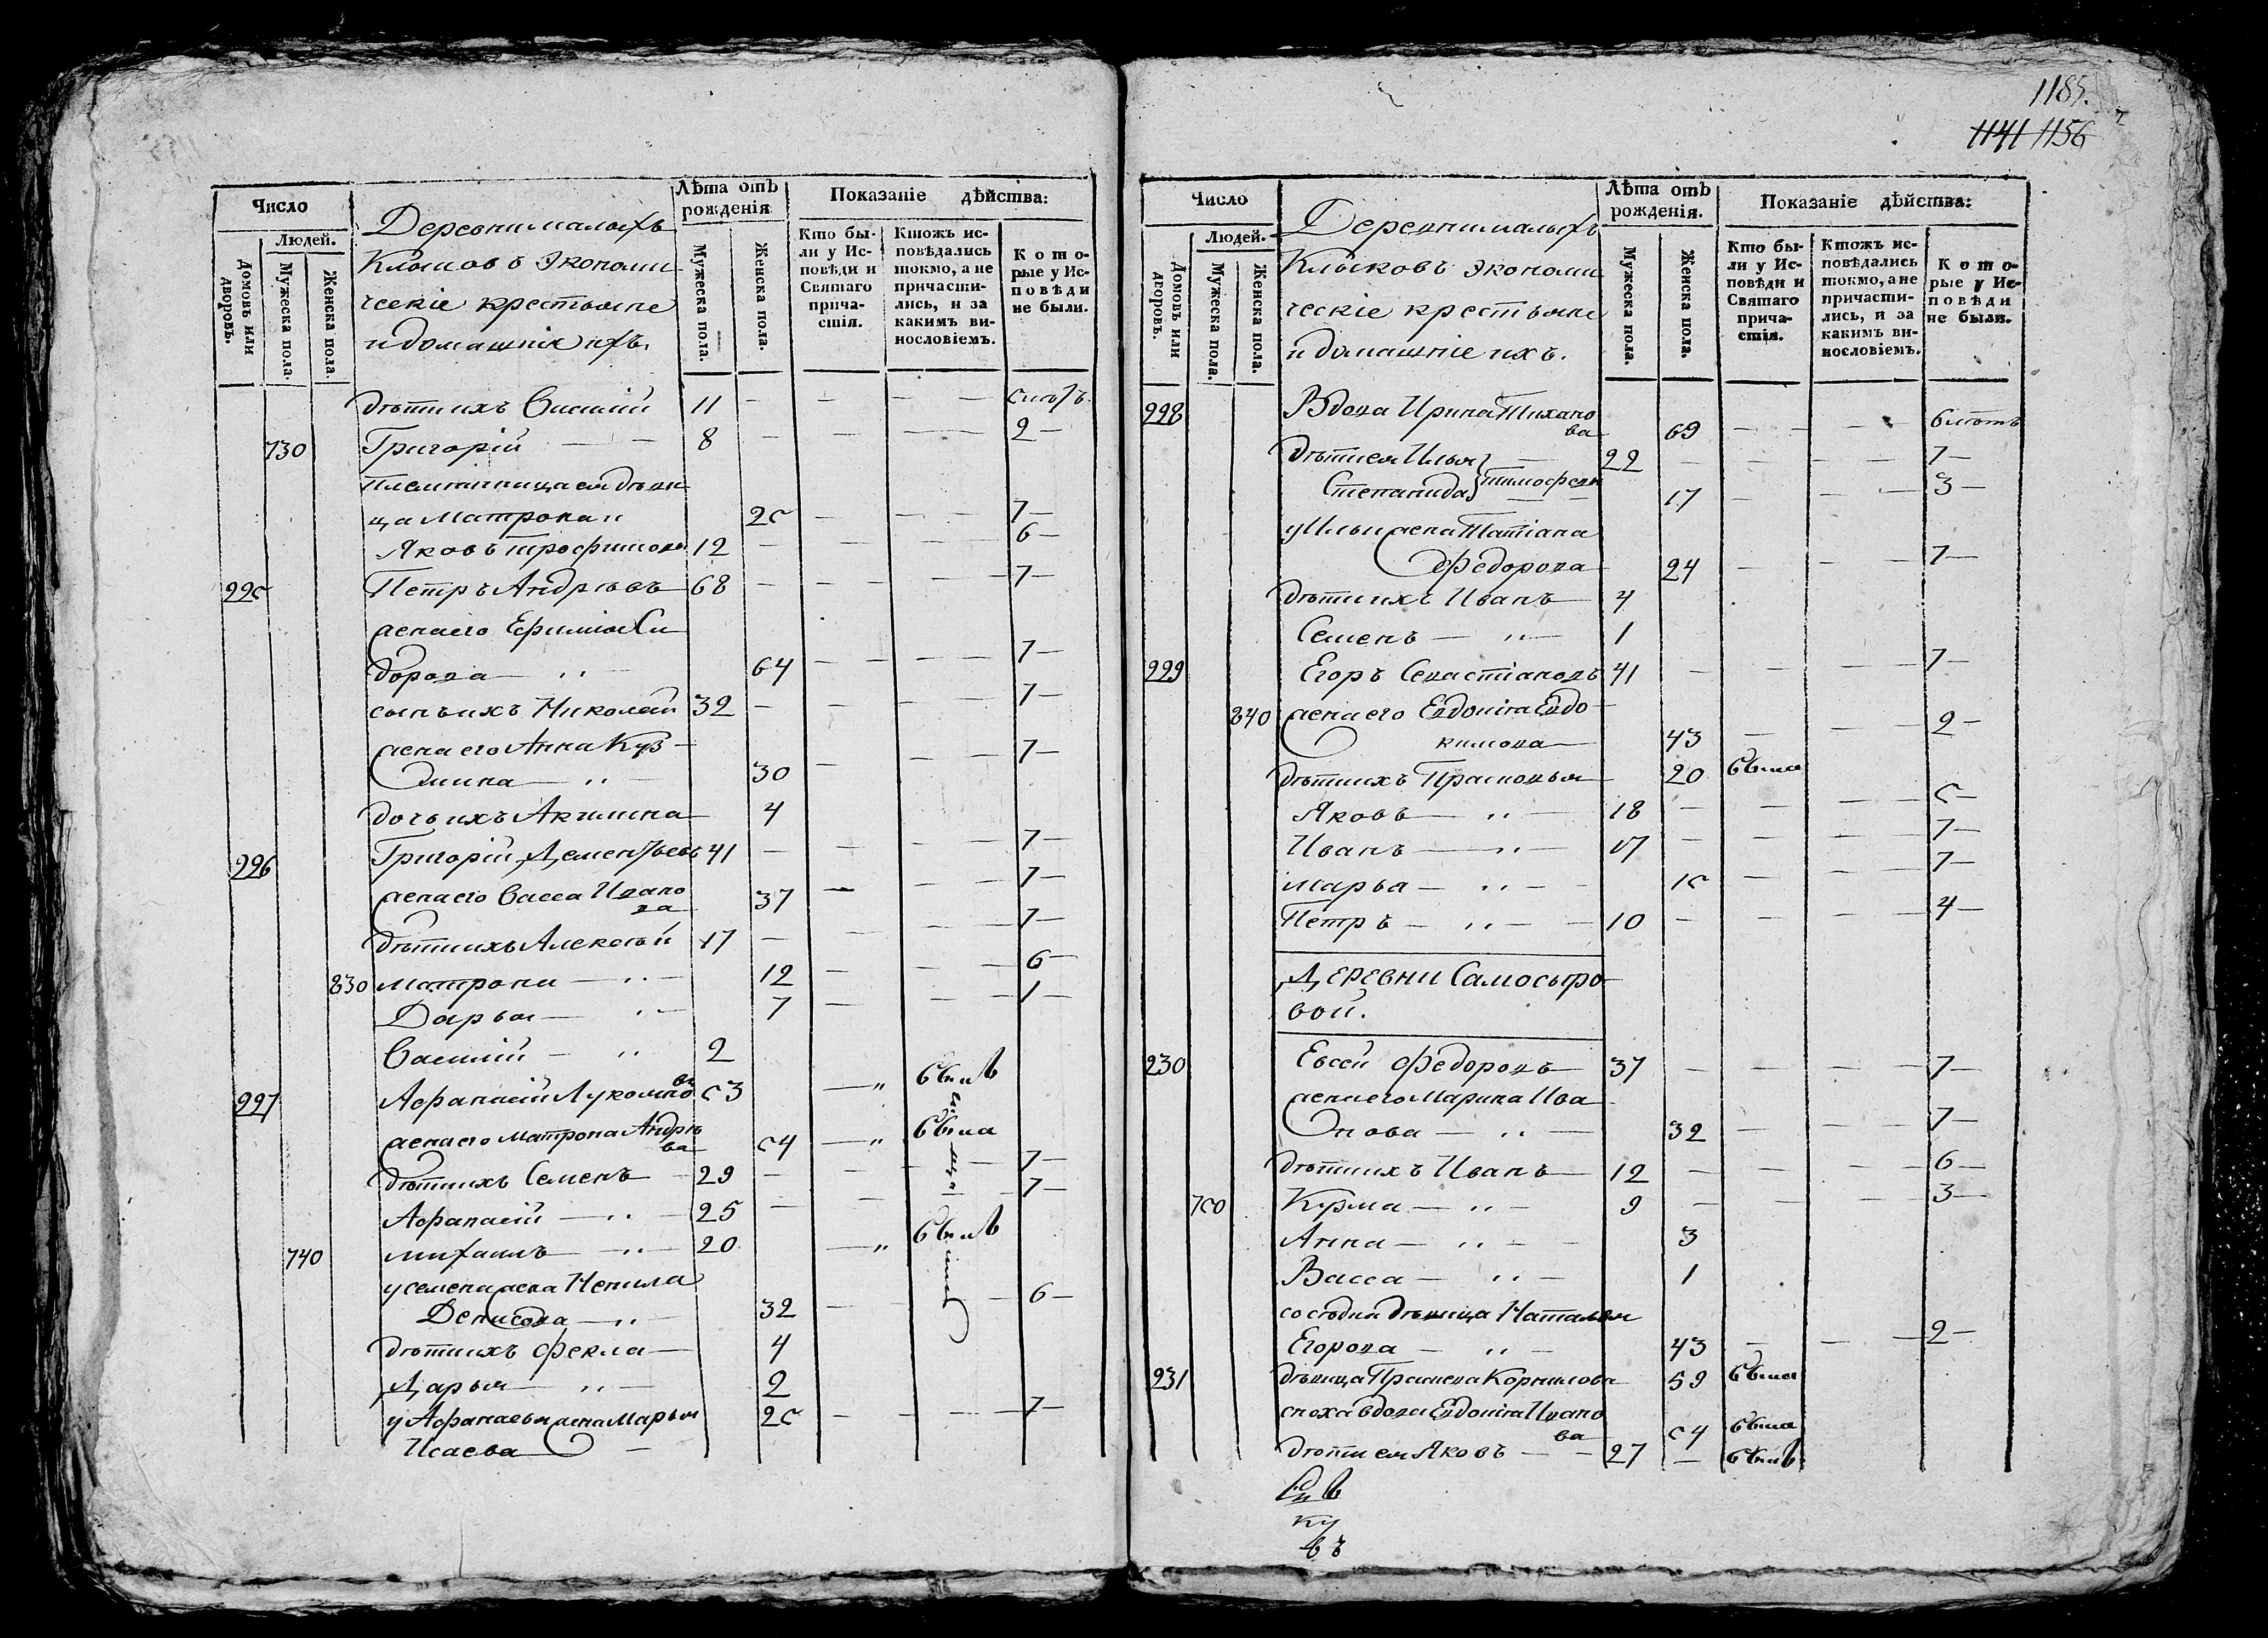 Число
Людей.
Домовъ или дворовъ.
Мужеска пола.
Женска пола.
Деревни малыхъ
Клыковъ Экономи
ческіе крестьяне
и домашніе ихъ.
Лѣта отъ рожденія
Мужеска пола.
Женска пола.
Показаніе дѣйства:
Кто были у Исповѣди и Святаго причастія.
Ктожъ исповѣдались токмо, а не причастились, и за какимъ винословіемъ.
Которые у Исповѣди не были.
дѣти ихъ Василій 11 — — — —
730 Григорій — — 8 — — — — 2 —
племянница ея дѣви
ца Матрона и 2С — — — 7 —
Яковъ Трофимовъ 12 — — — — 6 —
22С Петръ Андрѣевъ 68 — — — — 7 —
жена его Ефимія Си
дорова — 64 — — — — 7 —
сынъ ихъ Николай 32 — — — — 7 —
жена его Анна Куз
мина — 30 — — — 7 —
дочь ихъ Акилина 4
226 Григорій Дементьевъ 41 — — — — 7 —
жена его Васса Ивано
ва 37 — — — 7 —
дѣти ихъ Алексѣй 17 — — — — 7 —
830 Матрона — 12 — — — 6 —
Дарья — 7 — — — 1 —
Василій — 2
227 Афанасій Лукояно
въ С3 — былъ
жена его Матрона Андрѣ
ва С4 — была
дѣти ихъ Семенъ 29 — — — — 7 —
Афанасій — 25 — — 7 —
740 Михаилъ — 20 — былъ
у Семена жена Ненила
Денисова — 32 — — 6 —
дѣти ихъ Фекла — 4
Дарья — 2
у Афанасья жена Марья 2С — — — — 7 —
Исаева —
1185.
1141 1156
Число
Людей.
Домовъ или дворовъ.
Мужеска пола.
Женска пола.
Деревни малыхъ
Клыковъ экономи
ческіе крестьяне
и домашніе ихъ.
Лѣта отъ рожденія.
Мужеска пола.
Женска пола.
Показаніе дѣйства:
Кто были у Исповѣди и Святаго причастія.
Ктожъ исповѣдались токмо, а не причастились, и за какимъ винословіемъ.
Которые у Исповѣди не были.
228 Вдова Ирина Тихано
ва 69 — — — —
дѣти ея Илья — 22 — — — — 7 —
Степанида Тимофеевы 17 — — — 3 —
у Ильи жена Татіана
Федорова 24 — — — 7 —
дѣти ихъ Иванъ 4
Семенъ — 1
229 Егоръ Севастіановъ 41 — — — — 7 —
840 жена его Евдокія Евдо
кимова 43 — — — 2 —
дѣти ихъ Прасковья 20 была
Яковъ — 18 — — — — С —
Иванъ — 17 — — — — 7 —
Марья — 1С — — — 7 —
Петръ — 10 — — — — 4 —
Деревни Самосыро
вой.
230 Евсей Федоровъ 37 — — — — 7 —
жена его Марина Ива
нова — 32 — — — 7 —
дѣти ихъ Иванъ 12 — — — — 6 —
7С0 Кузма — 9 — — — 3 —
Анна — 3
Васса — 1
сосѣдка дѣвица Наталья
Егорова — 43 — — — 2 —
231 дѣвица Прасковья Корнилова 59 была
сноха вдова Евдокія Ивано
ва С4 была
дѣти ея Яковъ — 27 — былъ